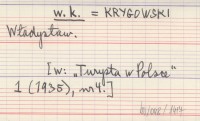 w.k. = KRYGOWSKI
Władysław.
[w: „Turysta w Polsce"
1 (1935), nr 4.]